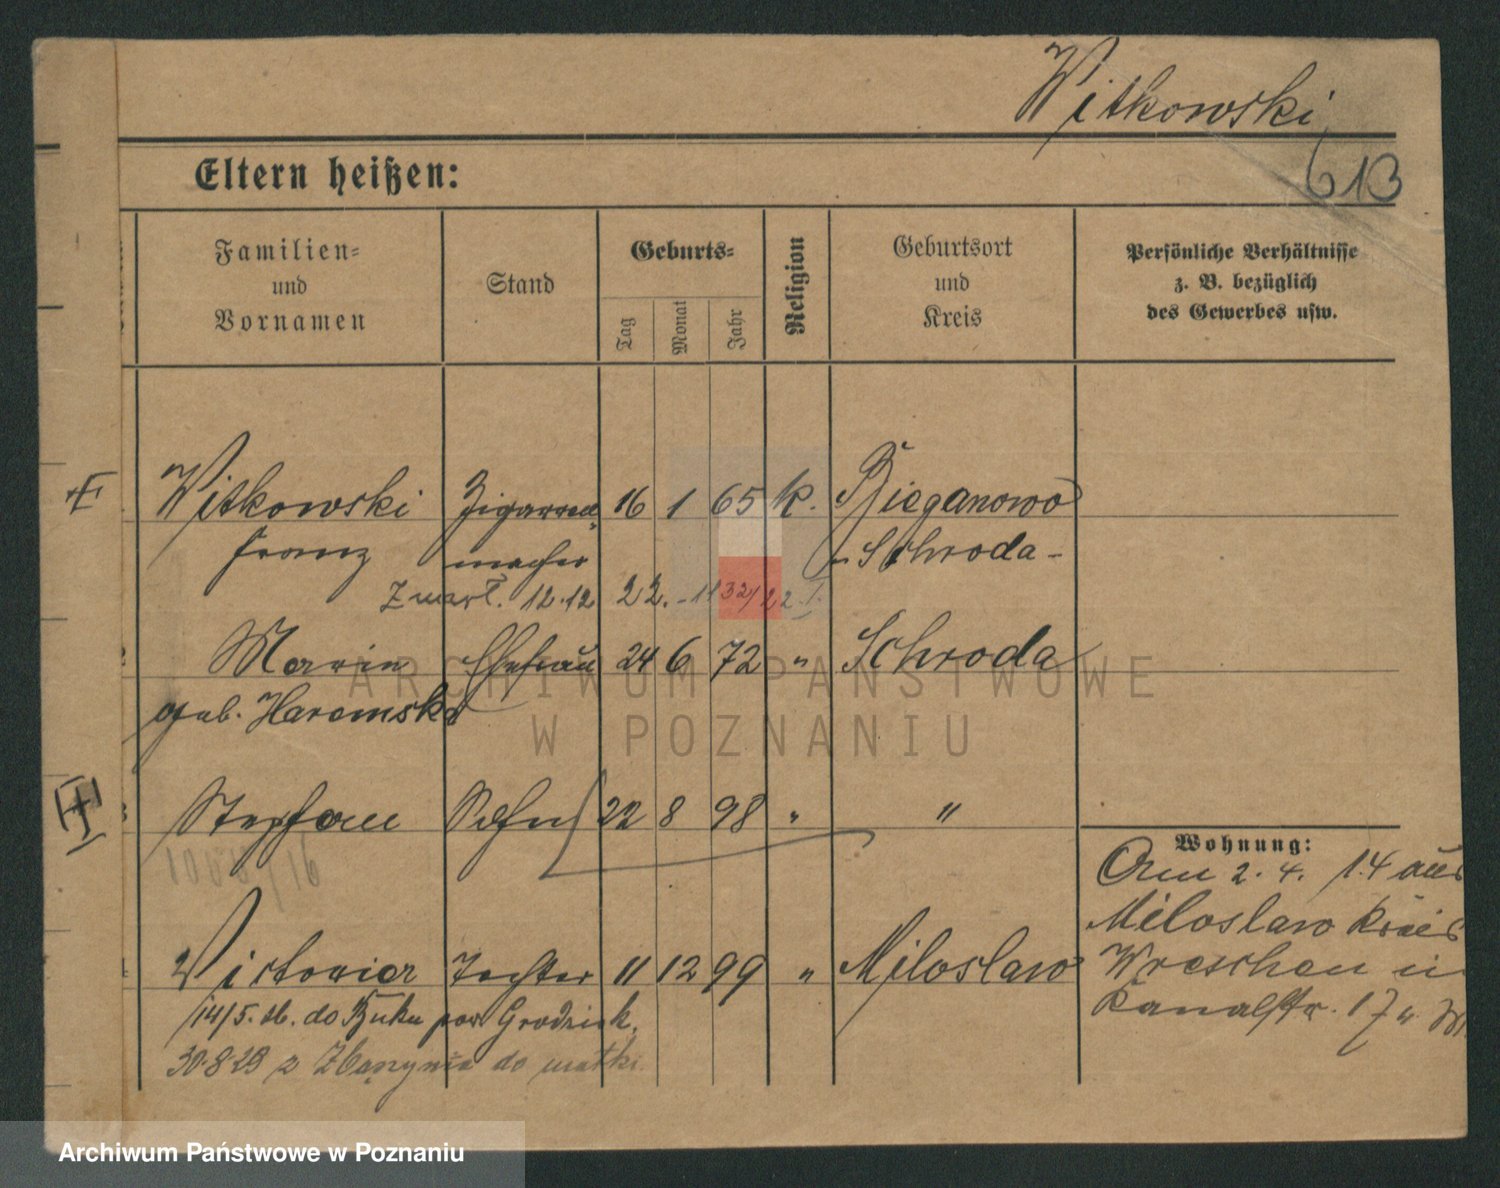 Witkowski
613
Eltern heißen:
Familien= und Vornamen
Stand
Geburts=
Tag
Monat
Jahr
Religion
Geburtsort und Kreis
Persönliche Verhältnisse z. B. bezüglich des Gewerbes usw.
Witkowski Zigarren= 16 1 65 k. Bieganowo
Franz macher - Schroda -
Zmarł. 12.12 22.
Marie Ehefrau 24 6 72 " Schroda
geb. Haremska
Stephan Sohn 22 8 98 " "
Wohnung:
Am 2. 4. 14 aus
Miloslaw Kreis
Wreschen in
Kanalstr. 17
Victoria Tochter 11 12 99 " Miloslaw
14/5. do Buku pow. Grodzisk.
30.8.23 z Zbąszynia do matki.
ARCHIWUM PAŃSTWOWE
W POZNANIU
Archiwum Państwowe w Poznaniu